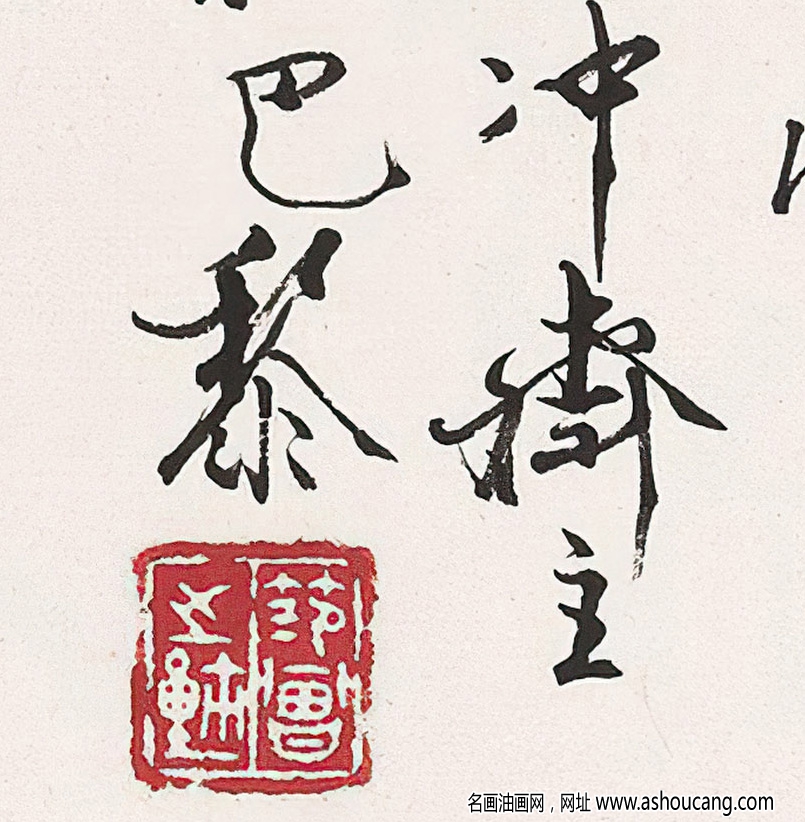 冲齋主
巴黎
范曾
名画油画网，网址 www.ashoucang.com